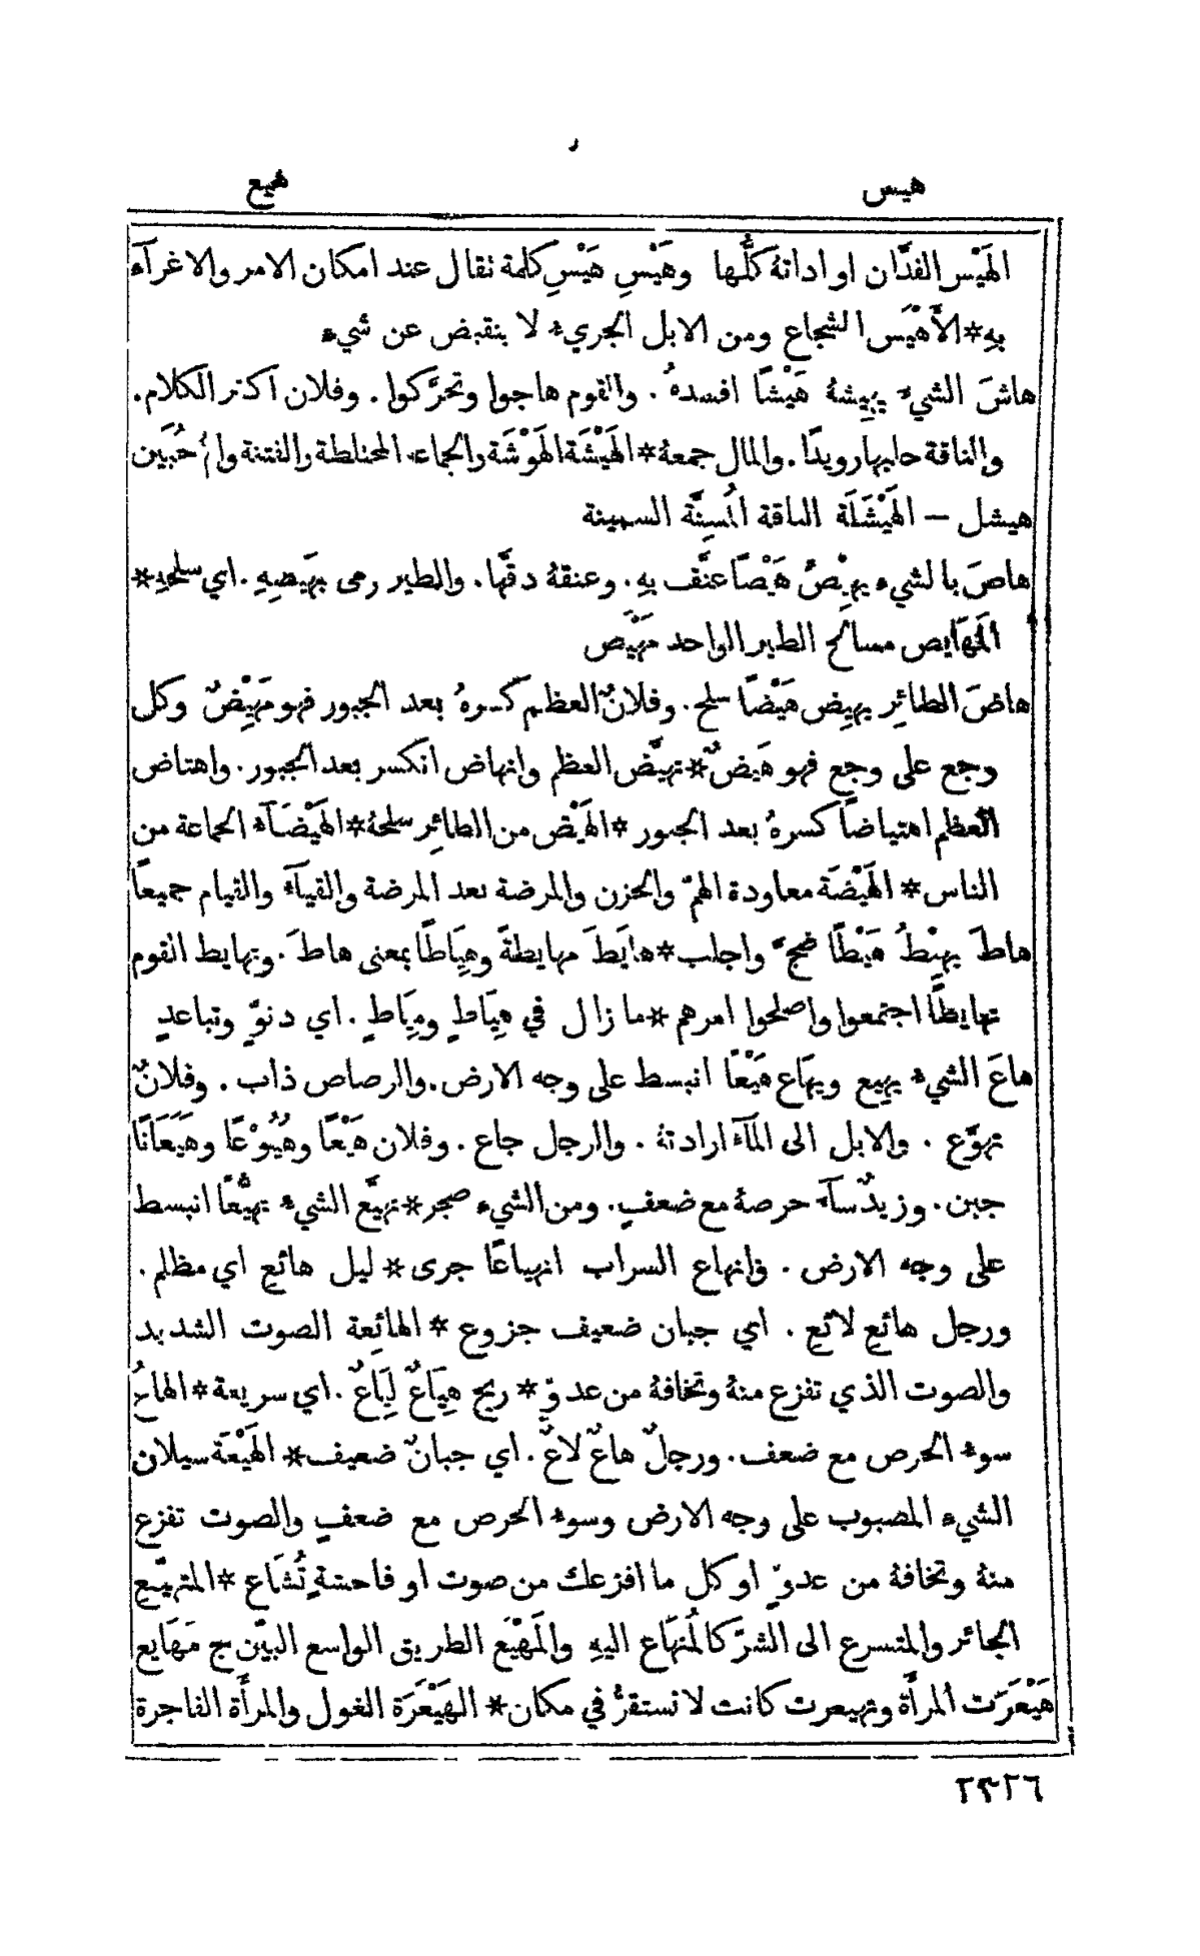 هيس
هيع
الهَيْس الفدَّان او اداتهُ كلُّها وهَيْسِ هَيْسِ كلمة تقال عند امكان الامر والاغرآء
بهِ * الأَهْيَس الشجاع ومن الابل الجريء لا ينقبض عن شيء
هاشَ الشيءَ يهيشهُ هَيْشًا افسدهُ . والقوم هاجوا وتحرَّكوا . وفلان اكثر الكلام .
والناقة حلبها رويدًا . والمال جمعهُ * الهَيْشَة الهَوْشَة والجماعة المختلطة والفتنة وامّ حُبَين
هيشل – الهَيْشَلَة الناقة المُسِنَّة السمينة
هاصَ بالشيء يهِيْصُ هَيْصًا عنَّف بهِ . وعنقهُ دقَّها . والطير رمى بهَيصِهِ . اي سلحهِ *
المَهَايص مسالح الطير الواحد مَهْيَص
هاضَ الطائِر يهِيض هَيْضًا سلح . وفلانٌ العظم كسرهُ بعد الجبور فهو مَهِيْضٌ وكل
وجع على وجع فهو هَيضٌ * تهيَّض العظم وانهاض انكسر بعد الجبور . واهتاض
العظم اهتياضًا كسرهُ بعد الجبور * الهَيْض من الطائِر سلحهُ * الهَيْضَآء الجماعة من
الناس * الهَيْضَة معاودة الهمّ والحزن والمرضة بعد المرضة والقيآء والقيام جميعًا
هاطَ يهِيْطُ هَيْطًا ضجَّ واجلب * هايَطَ مهايطةً وهِيَاطًا بمعنى هاطَ . وتهايط القوم
تهايطًا اجتمعوا واصلحوا امرهم * ما زال في هِيَاطٍ ومِيَاطٍ . اي دنوٍّ وتباعدٍ
هاعَ الشيء يهِيع ويهَاع هَيْعًا انبسط على وجه الارض . والرصاص ذاب . وفلانٌ
تهوَّع . والابل الى المآء ارادتهُ . والرجل جاع . وفلان هَيْعًا وهُيُوْعًا وهَيَعَانًا
جبن . وزيدٌ سآء حرصهُ مع ضعفٍ . ومن الشيء ضجر * تهيَّع الشيء تهيُّعًا انبسط
على وجه الارض . وانهاع السراب انهياعًا جرى * ليل هائع اي مظلم .
ورجل هائع لائع . اي جبان ضعيف جزوع * الهائِعة الصوت الشديد
والصوت الذي تفزع منهُ وتخافهُ من عدوٍّ * ريح هِيَاعٌ لِيَاعٌ . اي سريعة * الهاعُ
سوء الحرص مع ضعف . ورجلٌ هاعٌ لاعٌ . اي جبانٌ ضعيف * الهَيْعَة سيلان
الشيء المصبوب على وجه الارض وسوء الحرص مع ضعفٍ والصوت تفزع
منهُ وتخافهُ من عدوٍّ او كل ما افزعك من صوت او فاحشةٍ تُشَاع * المتهيّع
الجائر والمتسرع الى الشرّ كالمُنهَاع اليهِ والمَهْيَع الطريق الواسع البيّن ج مَهَايع
هَيْعَرَت المرأَة وتهيعرت كانت لا تستقرُّ في مكان * الهَيْعَرَة الغول والمرأَة الفاجرة
٢٣٢٦